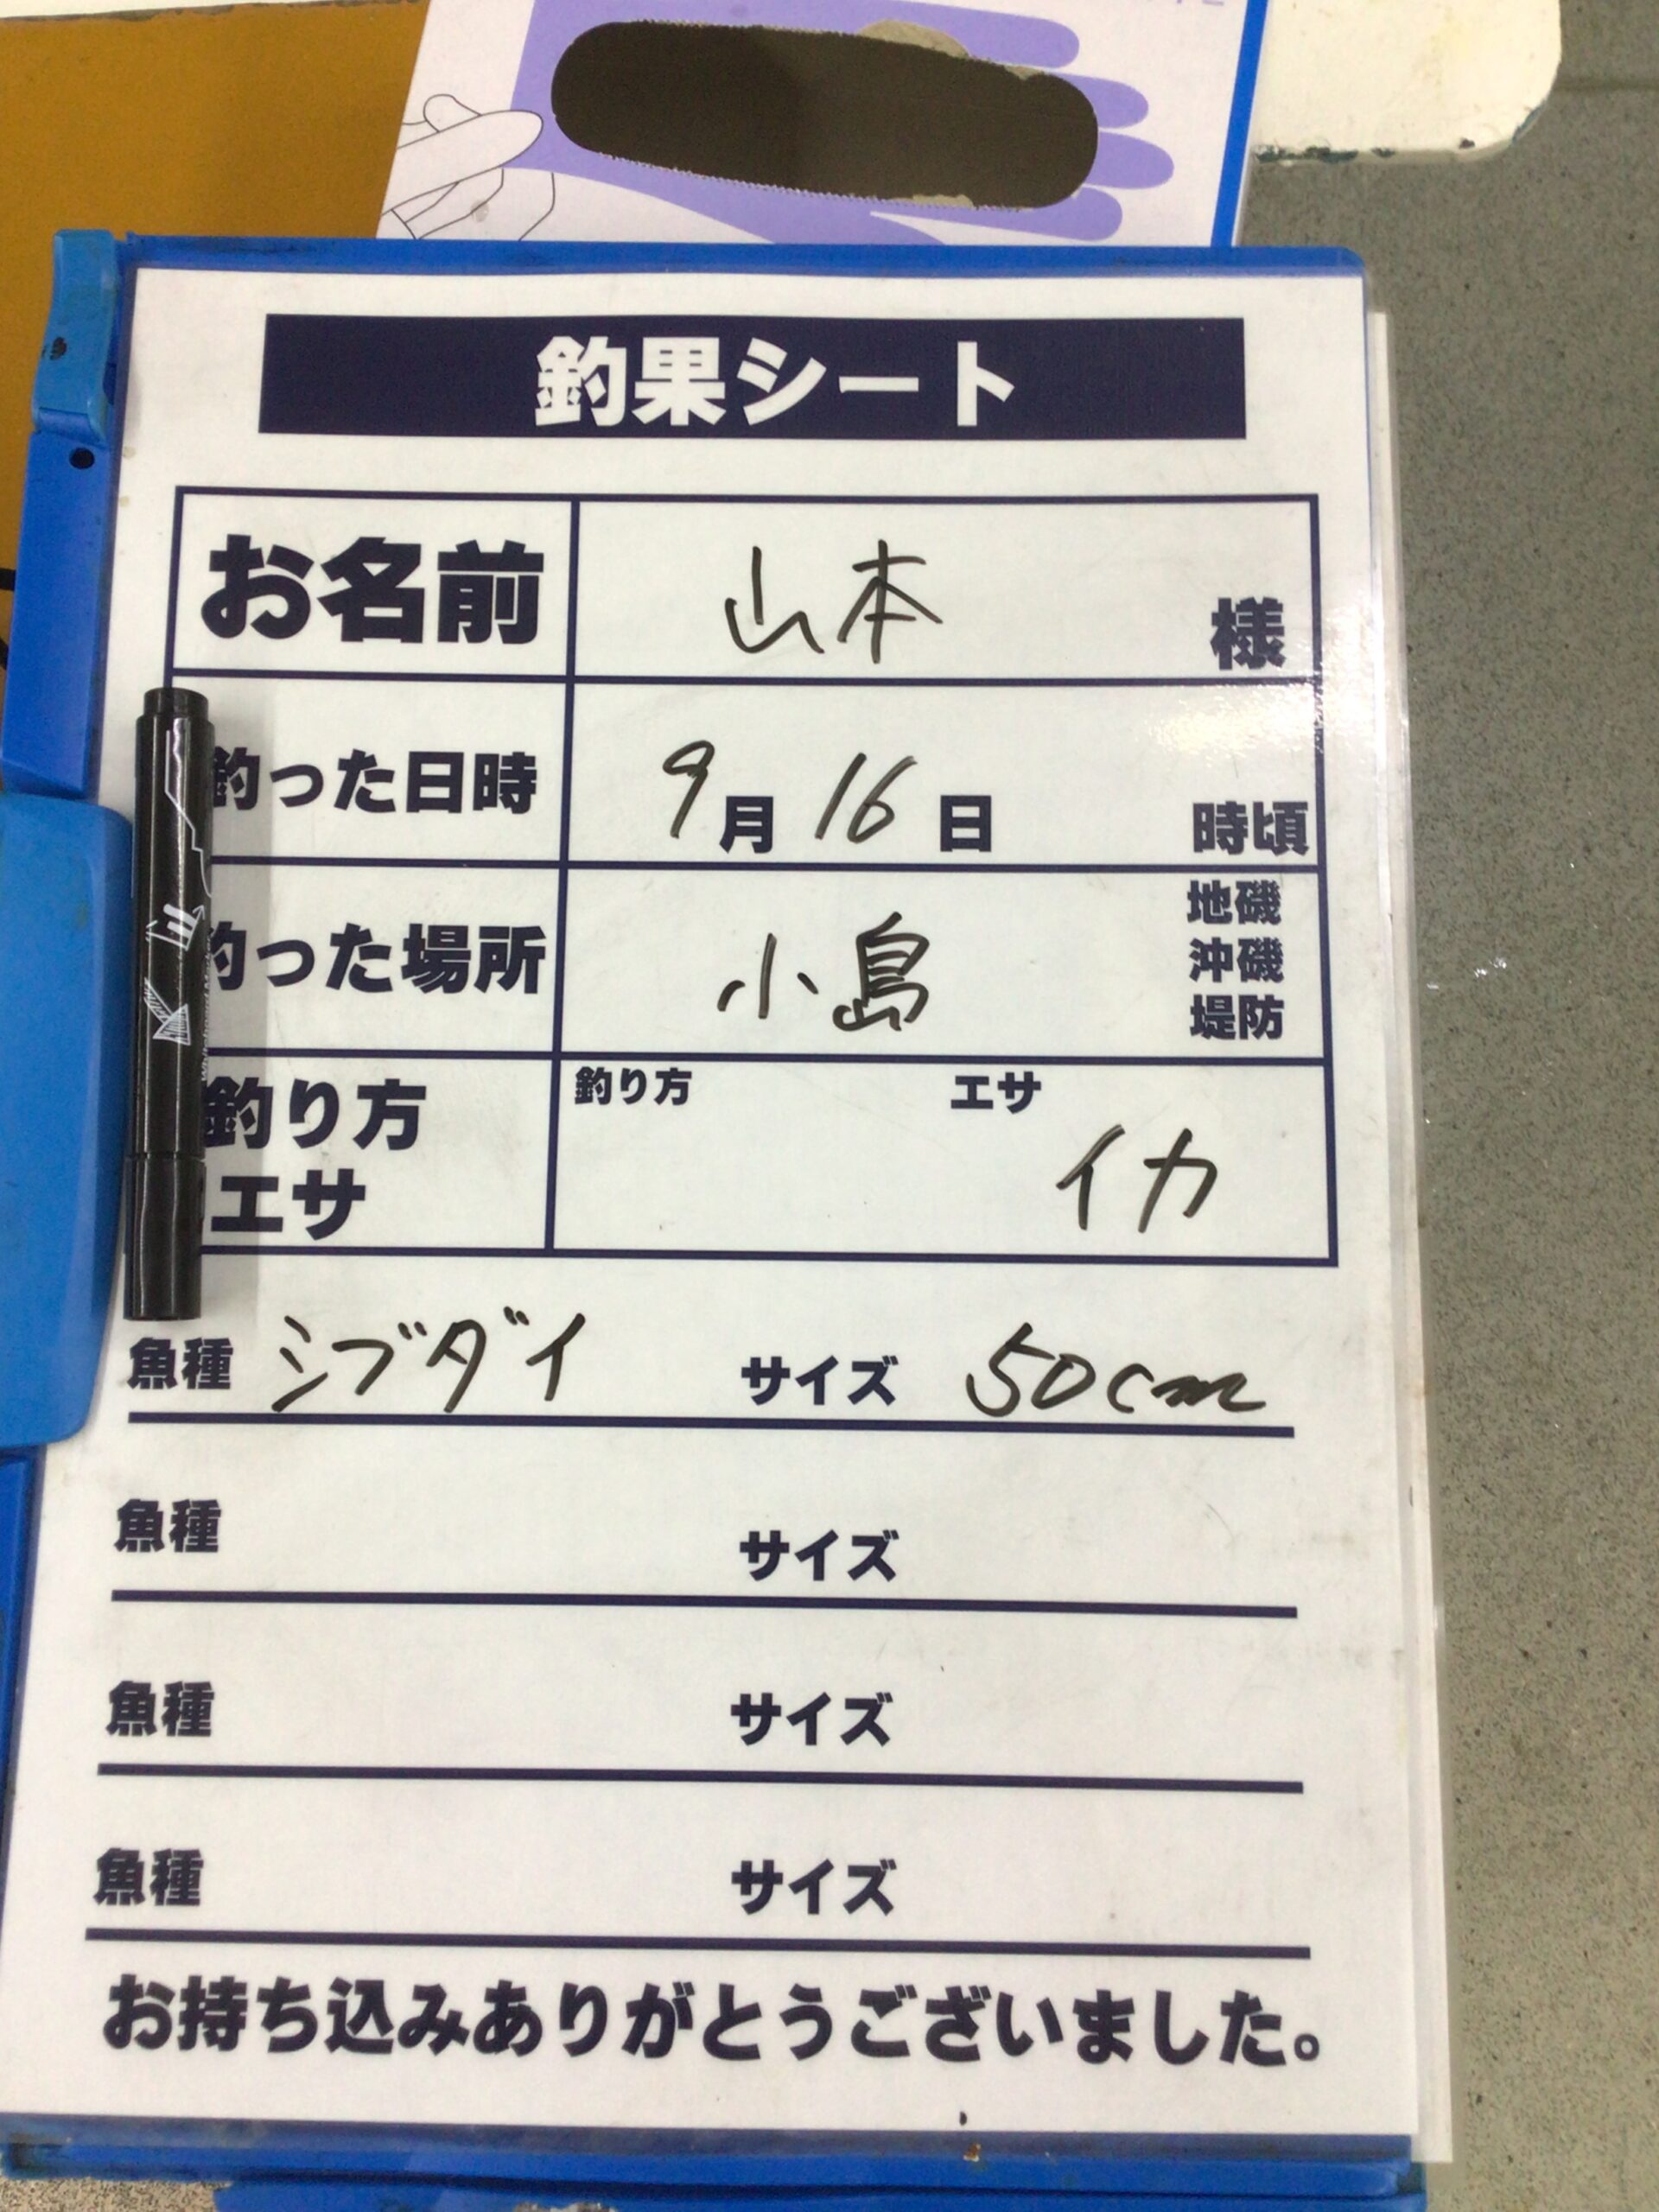 釣果シート
お名前 山本 様
釣った日時 9月16日 時頃
釣った場所 小島 地磯 沖磯 堤防
釣り方 エサ
釣り方 エサ イカ
魚種 シブダイ サイズ 50cm
魚種 サイズ
魚種 サイズ
魚種 サイズ
お持ち込みありがとうございました。